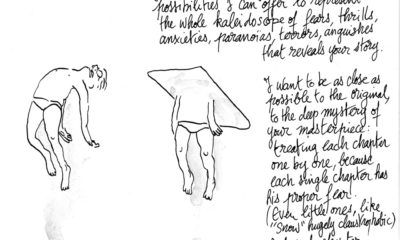 possibilities I can offer to represent
the whole kaleidoscope of fears, thrills,
anxieties, paranoias, terrors, anguishes
that reveals your story.
I want to be as close as
possible to the original,
to the deep mystery of
your masterpiece:
treating each chapter
one by one, because
each single chapter has
his proper fear.
(Even little ones, like
"Snow" hugely claustrophobic)